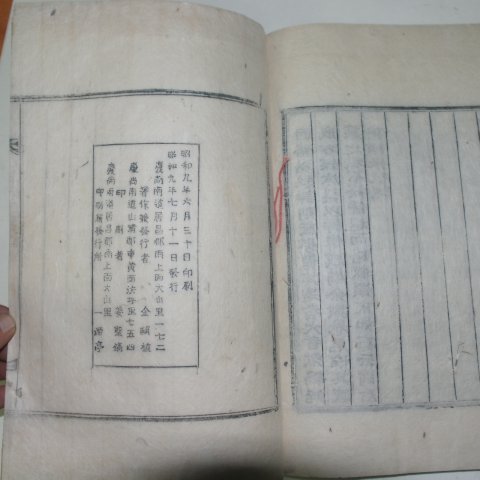 昭和九年六月三十日印刷
昭和九年七月十一日發行
慶尚南道居昌郡南上面大山里一七二
著作兼發行者 金
慶尚南道山郡車黃面法坪里七五四
印刷者 姜
慶尚南道居昌郡南上面大山里
印刷兼發行所 一亭